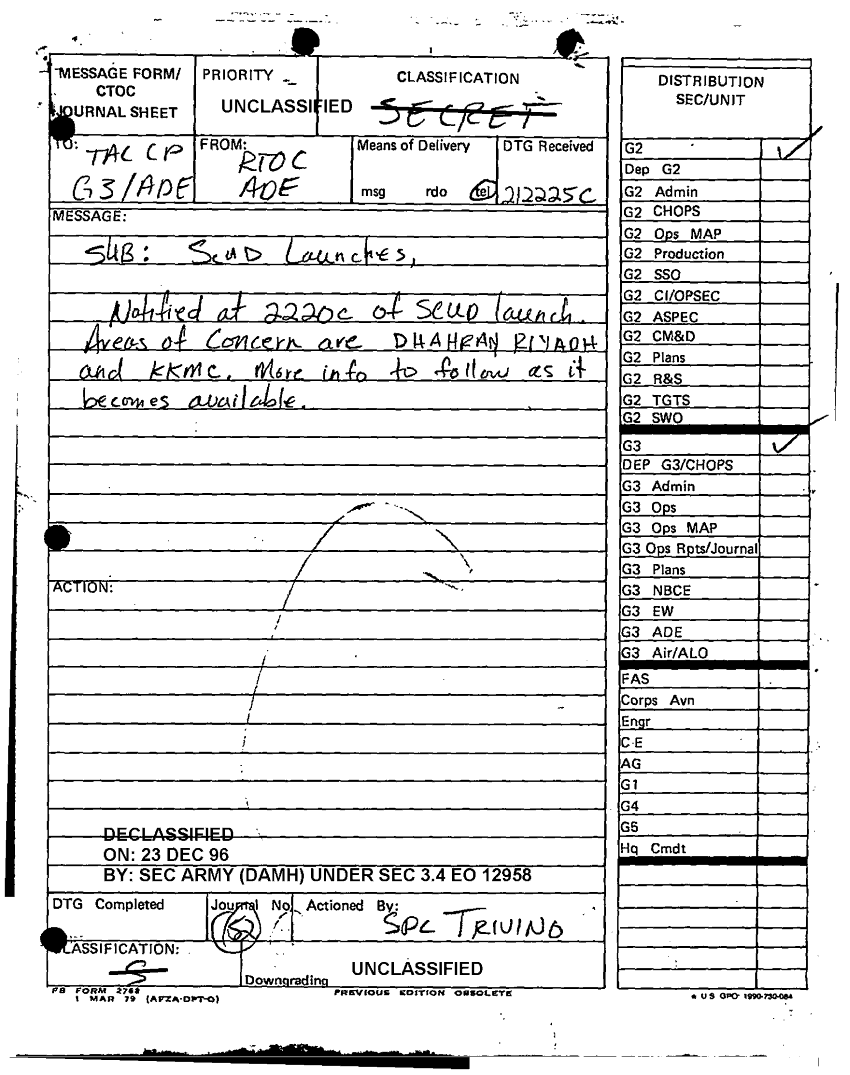 MESSAGE FORM/
CTOC
JOURNAL SHEET
PRIORITY
UNCLASSIFIED
CLASSIFICATION
SECRET
TO: TAC CP
G3/ADE
FROM:
RTOC
ADE
Means of Delivery
msg rdo tel
DTG Received
212225C
MESSAGE:
SUB: SCUD Launches,
Notified at 2220c of SCUD launch.
Areas of Concern are DHAHRAN RIYADH
and KKMC. More info to follow as it
becomes available.
ACTION:
DECLASSIFIED
ON: 23 DEC 96
BY: SEC ARMY (DAMH) UNDER SEC 3.4 EO 12958
DTG Completed
Journal No
Actioned By:
SPC TRIVINO
CLASSIFICATION:
S
Downgrading
UNCLASSIFIED
FB FORM 2768
1 MAR 79 (AFZA-DPT-O)
PREVIOUS EDITION OBSOLETE
DISTRIBUTION
SEC/UNIT
G2
Dep G2
G2 Admin
G2 CHOPS
G2 Ops MAP
G2 Production
G2 SSO
G2 CI/OPSEC
G2 ASPEC
G2 CM&D
G2 Plans
G2 R&S
G2 TGTS
G2 SWO
G3
DEP G3/CHOPS
G3 Admin
G3 Ops
G3 Ops MAP
G3 Ops Rpts/Journal
G3 Plans
G3 NBCE
G3 EW
G3 ADE
G3 Air/ALO
FAS
Corps Avn
Engr
C-E
AG
G1
G4
G5
Hq Cmdt
* U S GPO 1990-730-084